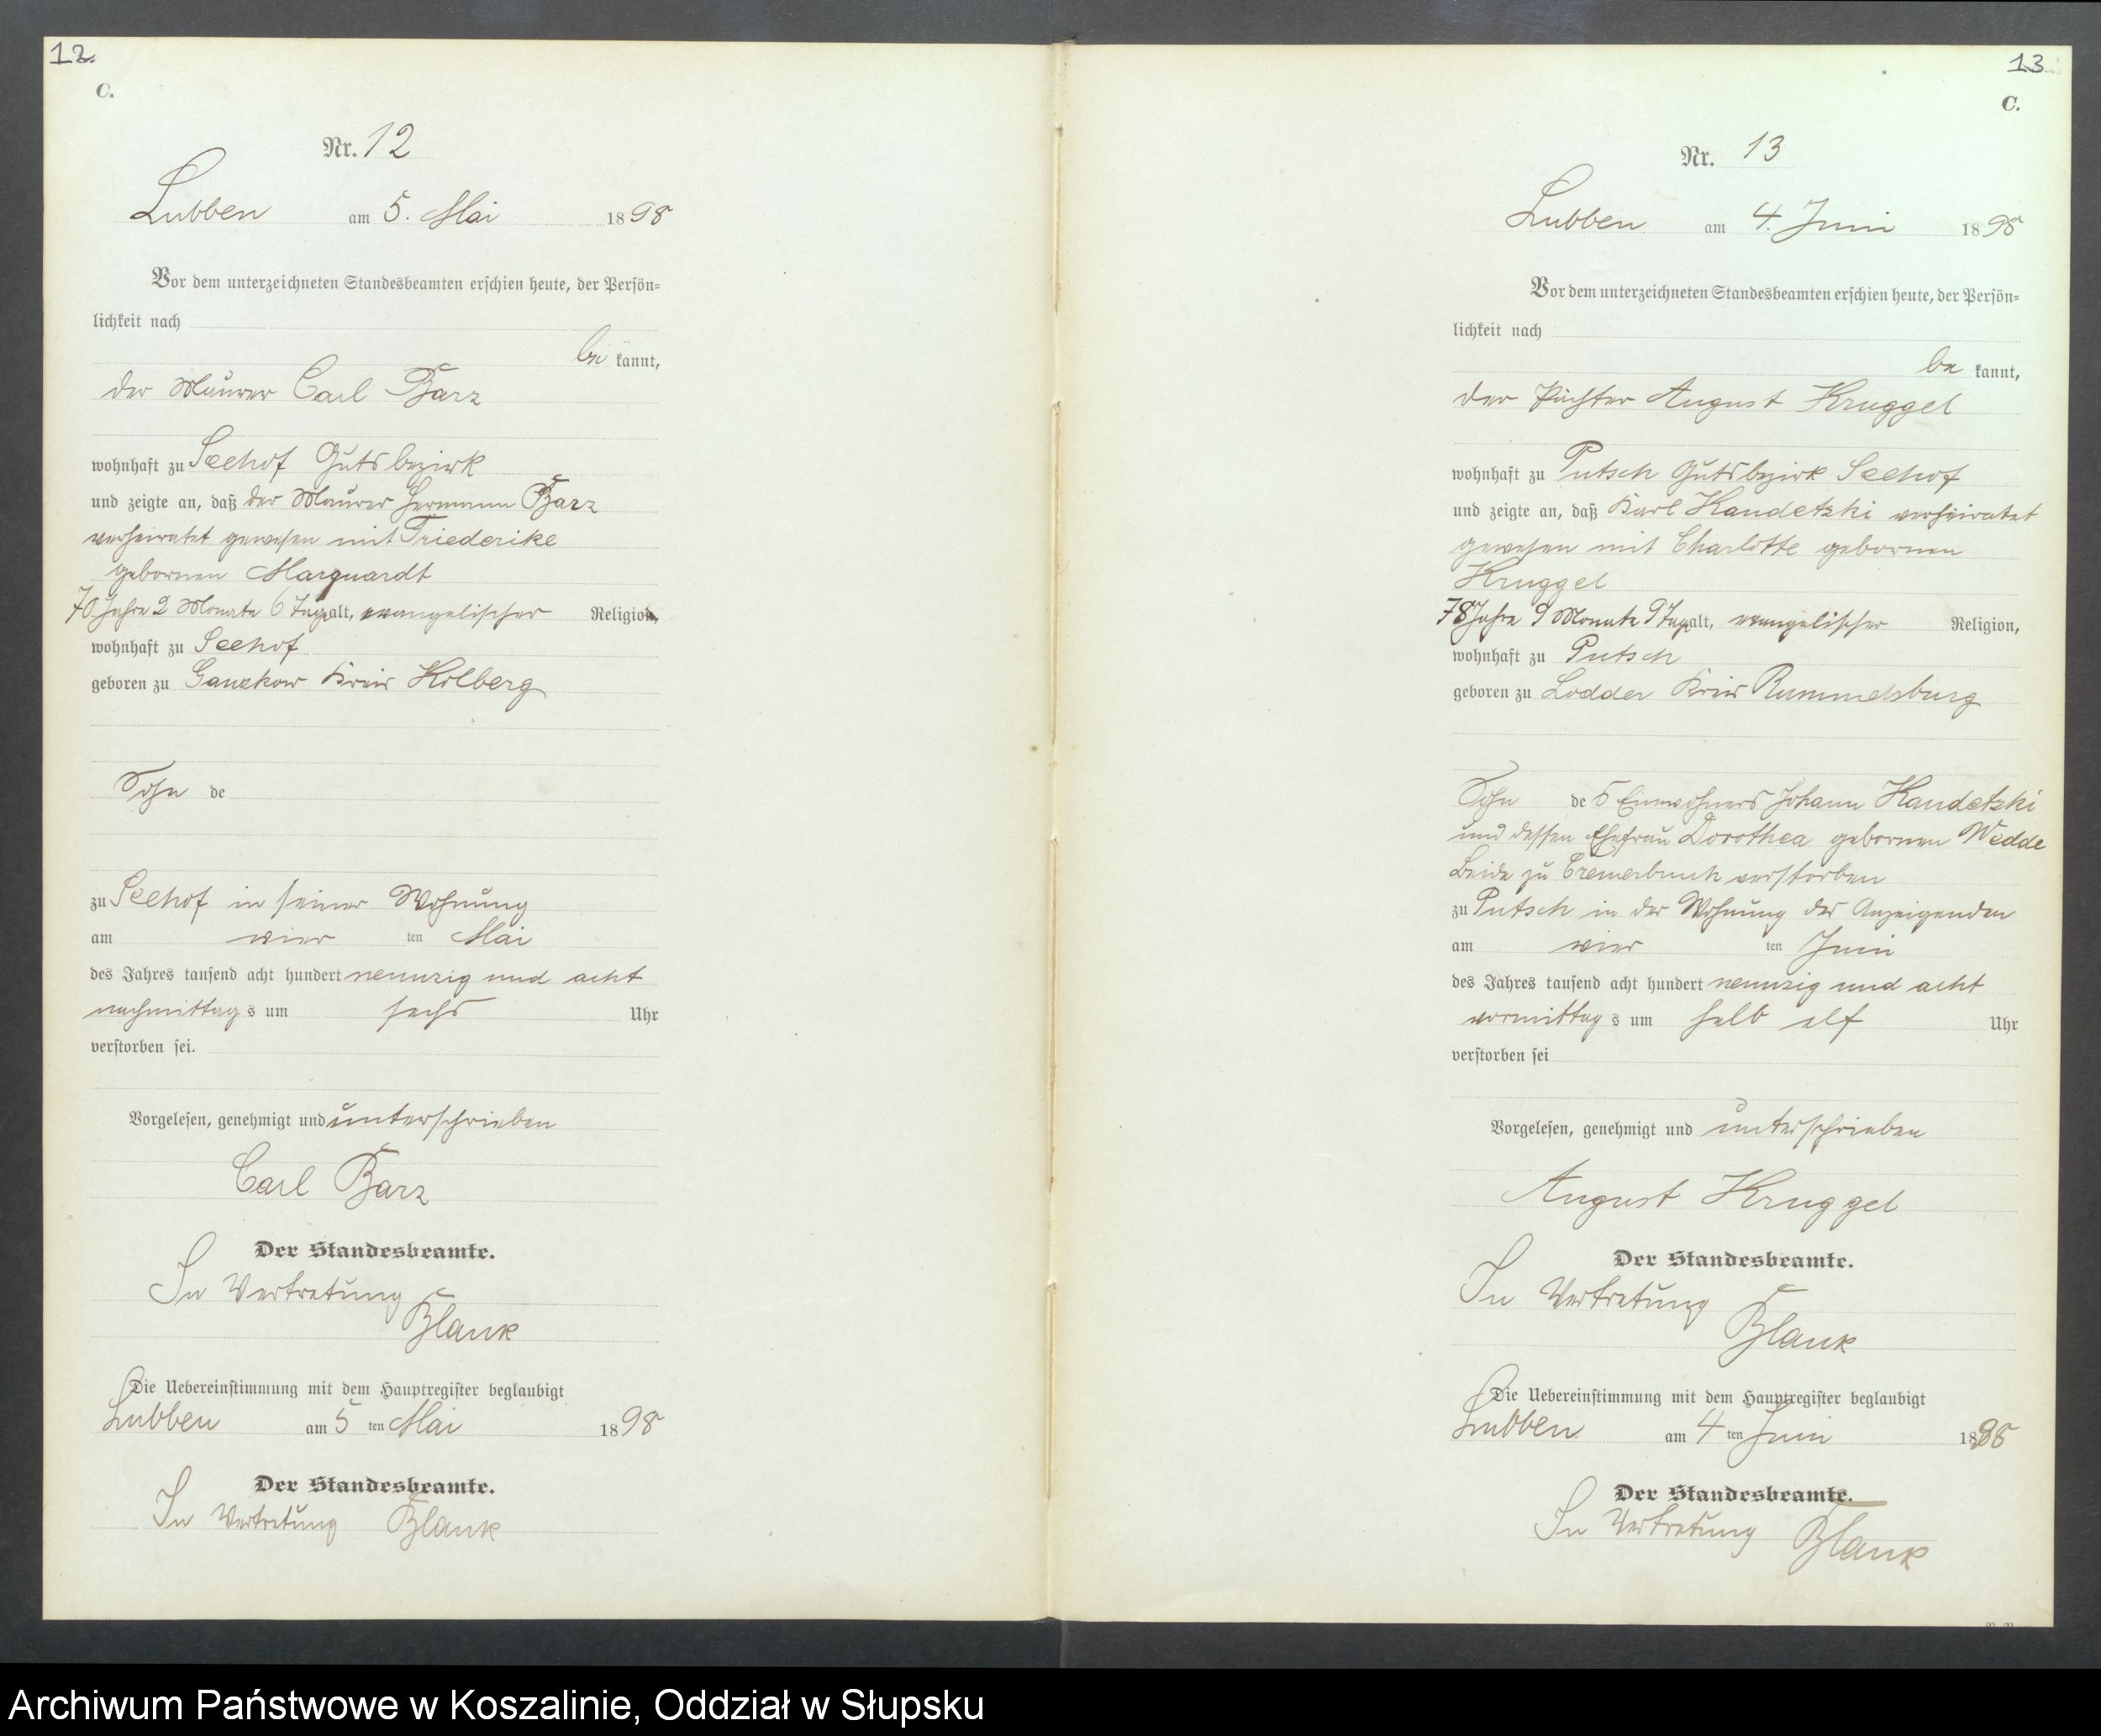 12.
C.
Nr. 12
Lubben am 5. Mai 1898
Vor dem unterzeichneten Standesbeamten erschien heute, der Persön-
lichkeit nach
be kannt,
der Maurer Carl Barz
wohnhaft zu Seehof Gutsbezirk
und zeigte an, daß der Maurer Hermann Barz
verheiratet gewesen mit Friederike
gebornen Marquardt
70 Jahre 2 Monate 6 Tage alt, evangelischer Religion,
wohnhaft zu Seehof
geboren zu Ganzkow Kreis Kolberg
Sohn de
zu Seehof in seiner Wohnung
am vier ten Mai
des Jahres tausend acht hundert neunzig und acht
nachmittag s um sechs Uhr
verstorben sei.
Vorgelesen, genehmigt und unterschrieben
Carl Barz
Der Standesbeamte.
In Vertretung
Blank
Die Uebereinstimmung mit dem Hauptregister beglaubigt
Lubben am 5 ten Mai 1898
Der Standesbeamte.
In Vertretung Blank
13
C.
Nr. 13
Lubben am 4. Juni 1898
Vor dem unterzeichneten Standesbeamten erschien heute, der Persön-
lichkeit nach
be kannt,
der Pächter August Kruggel
wohnhaft zu Putsch Gutsbezirk Seehof
und zeigte an, daß Karl Kandetzki verheiratet
gewesen mit Charlotte gebornen
Kruggel
78 Jahre 9 Monate 9 Tage alt, evangelischer Religion,
wohnhaft zu Putsch
geboren zu Lodder Kreis Rummelsburg
Sohn des Einwohners Johann Kandetzki
und dessen Ehefrau Dorothea gebornen Wedde
Beide zu Cremerbruch verstorben
zu Putsch in der Wohnung des Anzeigenden
am vier ten Juni
des Jahres tausend acht hundert neunzig und acht
vormittag s um halb elf Uhr
verstorben sei
Vorgelesen, genehmigt und unterschrieben
August Kruggel
Der Standesbeamte.
In Vertretung
Blank
Die Uebereinstimmung mit dem Hauptregister beglaubigt
Lubben am 4 ten Juni 1898
Der Standesbeamte.
In Vertretung Blank
Archiwum Państwowe w Koszalinie, Oddział w Słupsku